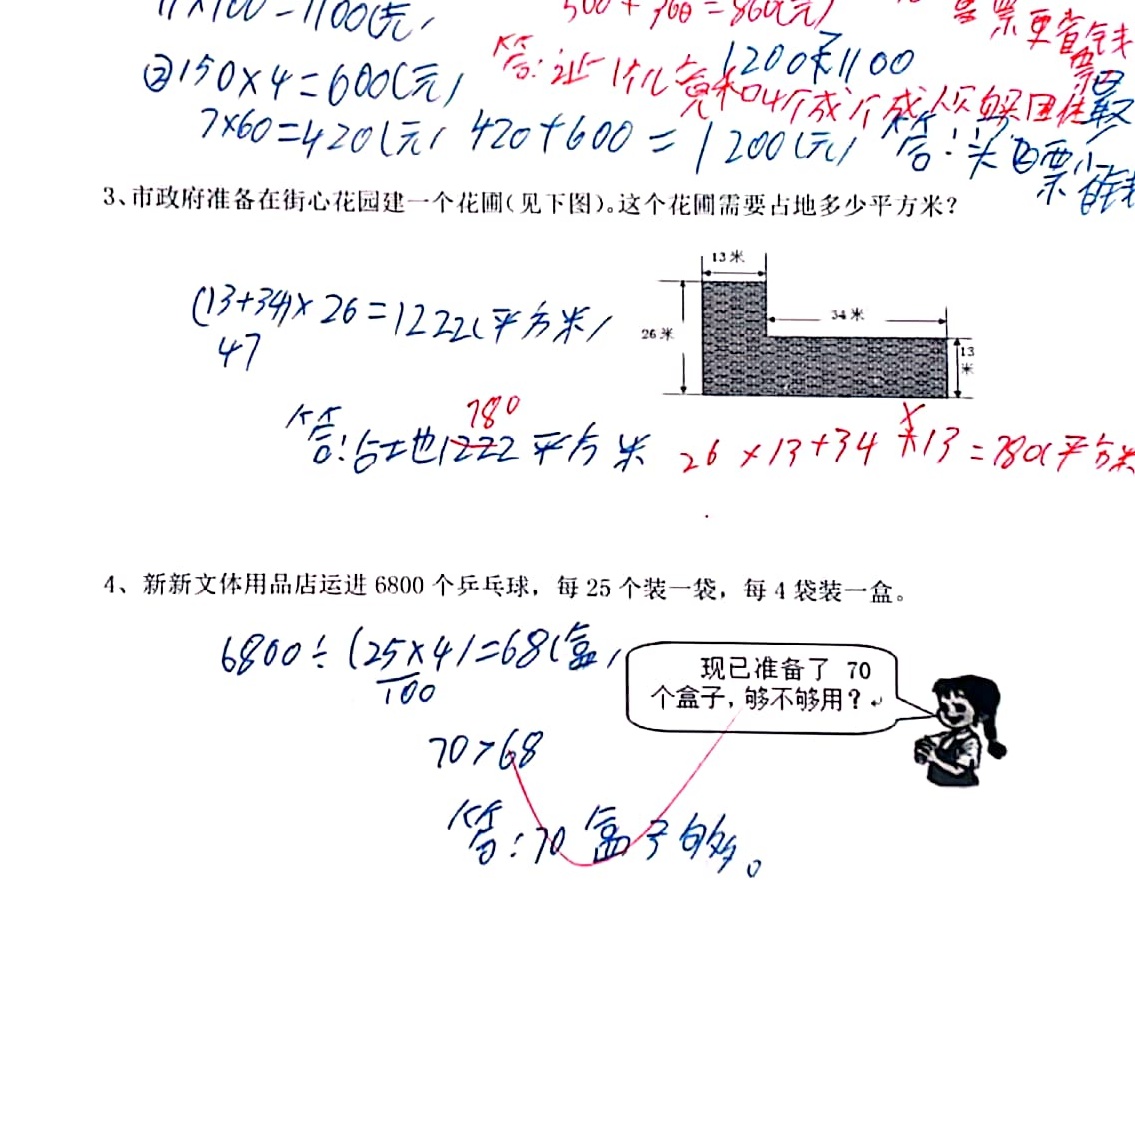 11×100=1100(元)
500+360=860(元)
票更省钱
②150×4=600(元)
1200>1100
7×60=420(元) 420+600=1200(元) 答:买团票
3、市政府准备在街心花园建一个花圃(见下图)。这个花圃需要占地多少平方米?
13米
(13+34)×26=1222(平方米)
47
34米
26米
13米
780
答:占地1222平方米
26×13+34×13=780(平方米
4、新新文体用品店运进 6800 个乒乓球，每 25 个装一袋，每 4 袋装一盒。
6800÷(25×4)=68(盒)
100
现已准备了 70
个盒子，够不够用？
70>68
答:70盒子够。